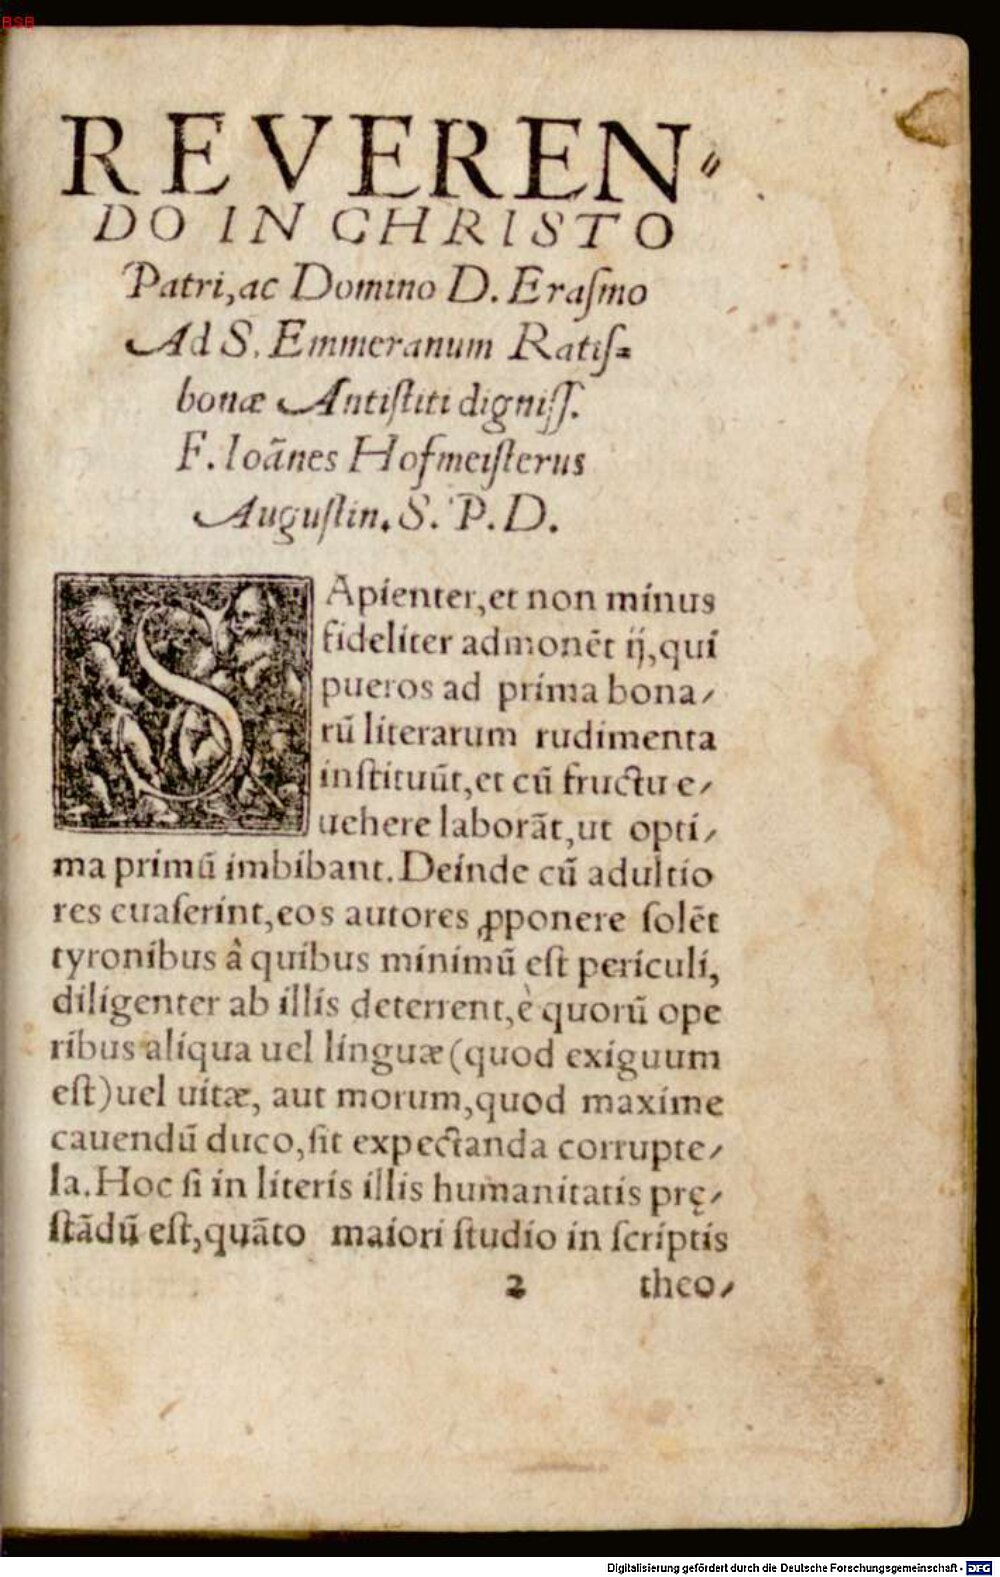 BSB
REVEREN⸗
DO IN CHRISTO
Patri, ac Domino D. Eraſmo
Ad S. Emmeranum Ratiſ⸗
bonæ Antiſtiti digniſſ.
F. Ioãnes Hofmeiſterus
Auguſtin. S. P. D.
SApienter, et non minus
fideliter admonẽt ij, qui
pueros ad prima bona⸗
rũ literarum rudimenta
inſtituũt, et cũ fructu e⸗
uehere laborãt, ut opti⸗
ma primũ imbibant. Deinde cũ adultio
res euaſerint, eos autores ꝓponere ſolẽt
tyronibus â quibus minimũ eſt periculi,
diligenter ab illis deterrent, è quorũ ope
ribus aliqua uel linguæ (quod exiguum
eſt) uel uitæ, aut morum, quod maxime
cauendũ duco, ſit expectanda corrupte⸗
la. Hoc ſi in literis illis humanitatis prę⸗
ſtãdũ eſt, quãto maiori ſtudio in ſcriptis
2 theo⸗
Digitalisierung gefördert durch die Deutsche Forschungsgemeinschaft - DFG